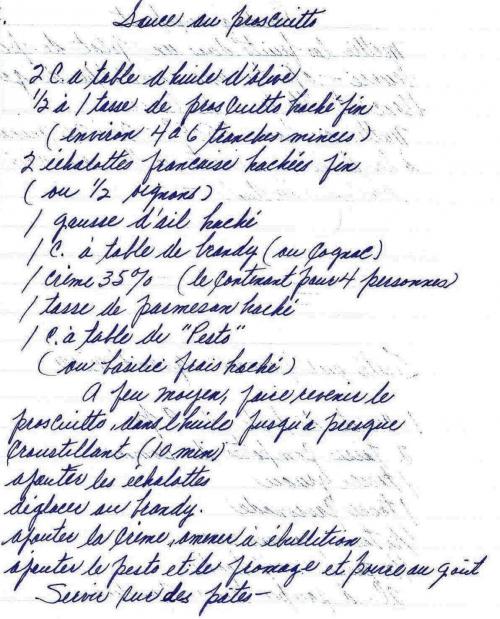 Sauce au prosciutto
2 C. à table d'huile d'olive
1/2 à 1 tasse de prosciutto haché fin
(environ 4 à 6 tranches minces)
2 échalottes française hachées fin
(ou 1/2 oignons)
1 gausse d'ail haché
1 C. à table de brandy (ou Cognac)
1 crème 35% (le contenant pour 4 personnes)
1 tasse de parmesan haché
1 C. à table de "Pesto"
(ou basilic frais haché)
A feu moyen, faire revenir le
prosciutto dans l'huile jusqu'à presque
croustillant (10 min)
ajouter les échalottes
déglacer au brandy.
ajouter la crème, amener à ébullition
ajouter le pesto et le fromage et poivre au goût
Servir sur des pâtes -